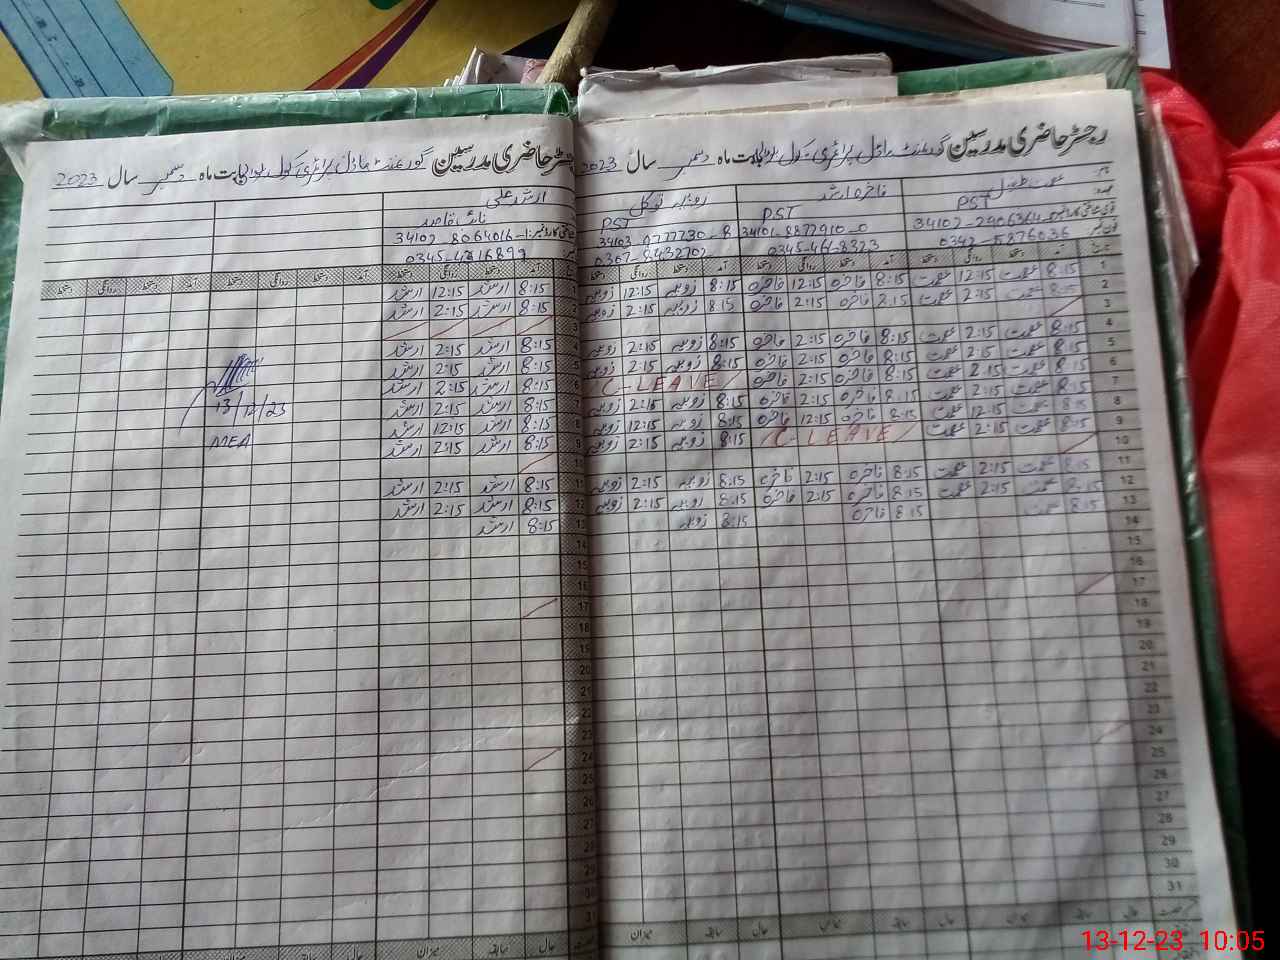 رجسٹر حاضری مدرسین گورنمنٹ ماڈل پرائمری سکول بابت ماہ دسمبر سال 2023
عصمت فاخرہ ارشد روبینہ
PST PST PST
34101-8877910-0
0345-461-8323 0307-8432702
1 8:15 عصمت 12:15 عصمت 8:15 فاخرہ 12:15 فاخرہ 8:15 زوبیہ 12:15 زوبیہ
2 8:15 عصمت 2:15 عصمت 8:15 فاخرہ 2:15 فاخرہ 8:15 زوبیہ 2:15 زوبیہ
3
4 8:15 عصمت 2:15 عصمت 8:15 فاخرہ 2:15 فاخرہ 8:15 زوبیہ 2:15 زوبیہ
5 8:15 عصمت 2:15 عصمت 8:15 فاخرہ 2:15 فاخرہ 8:15 زوبیہ 2:15 زوبیہ
6 8:15 عصمت 2:15 عصمت 8:15 فاخرہ 2:15 فاخرہ C-LEAVE
7 8:15 عصمت 2:15 عصمت 8:15 فاخرہ 2:15 فاخرہ 8:15 زوبیہ 2:15 زوبیہ
8 8:15 عصمت 12:15 عصمت 8:15 فاخرہ 12:15 فاخرہ 8:15 زوبیہ 12:15 زوبیہ
9 8:15 عصمت 2:15 عصمت C-LEAVE 8:15 زوبیہ 2:15 زوبیہ
10
11 8:15 عصمت 2:15 عصمت 8:15 فاخرہ 2:15 فاخرہ 8:15 زوبیہ 2:15 زوبیہ
12 8:15 عصمت 2:15 عصمت 8:15 فاخرہ 2:15 فاخرہ 8:15 زوبیہ 2:15 زوبیہ
13 8:15 عصمت 8:15 فاخرہ 8:15 زوبیہ
14
15
16
17
18
19
20
21
22
23
24
25
26
27
28
29
30
31
میزان سابقہ حال میزان سابقہ حال میزان سابقہ حال
رجسٹر حاضری مدرسین گورنمنٹ ماڈل پرائمری سکول بابت ماہ دسمبر سال 2023
ارشد علی
نائب قاصد
34102-8064016-1
0345-4316899
آمد دستخط روانگی دستخط آمد دستخط روانگی دستخط
1 8:15 ارشد 12:15 ارشد
2 8:15 ارشد 2:15 ارشد
3
4 8:15 ارشد 2:15 ارشد
5 8:15 ارشد 2:15 ارشد
6 8:15 ارشد 2:15 ارشد
7 8:15 ارشد 2:15 ارشد
8 8:15 ارشد 12:15 ارشد
9 8:15 ارشد 2:15 ارشد
10
11 8:15 ارشد 2:15 ارشد
12 8:15 ارشد 2:15 ارشد
13 8:15 ارشد
14
15
16
17
18
19
20
21
22
23
24
25
26
27
28
29
30
31
حال سابقہ میزان حال سابقہ میزان
13/12/23
MEA
13-12-23 10:05